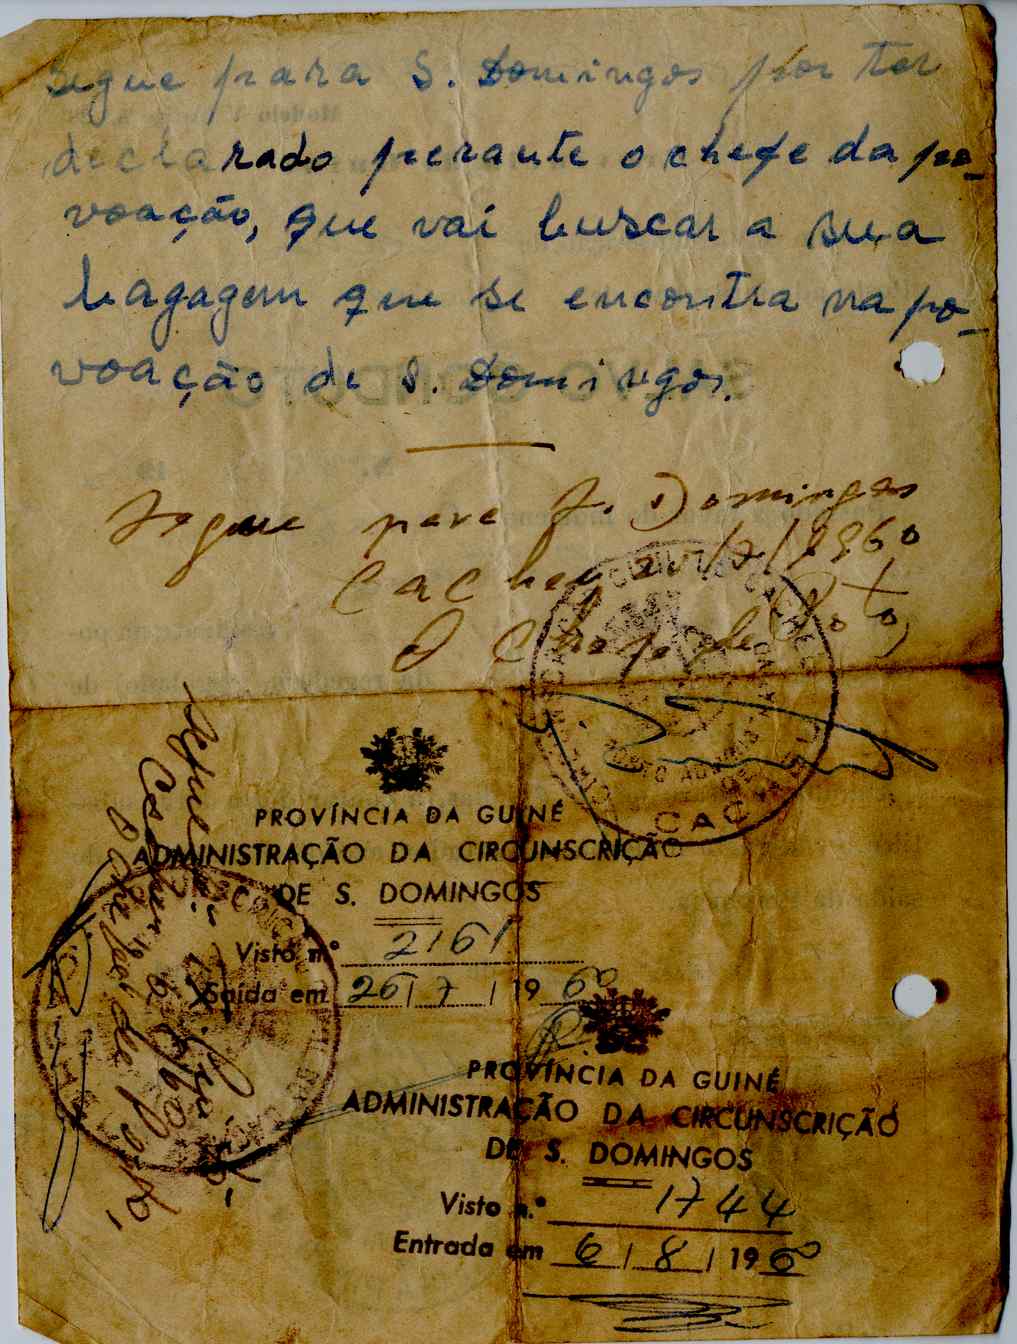 Segue para S. Domingos por ter
declarado perante o chefe da po-
voação, que vai buscar a sua
bagagem que se encontra na po-
voação de S. Domingos.
Segue para S. Domingos
Cacheu /7/1960
O Chefe de Posto,
CAC
PROVÍNCIA DA GUINÉ
ADMINISTRAÇÃO DA CIRCUNSCRIÇÃO
DE S. DOMINGOS
Visto n.º 2161
Saída em 26/7/1960
Segue
de Posto,
PROVÍNCIA DA GUINÉ
ADMINISTRAÇÃO DA CIRCUNSCRIÇÃO
DE S. DOMINGOS
Visto n.º 1744
Entrada em 6/8/1960